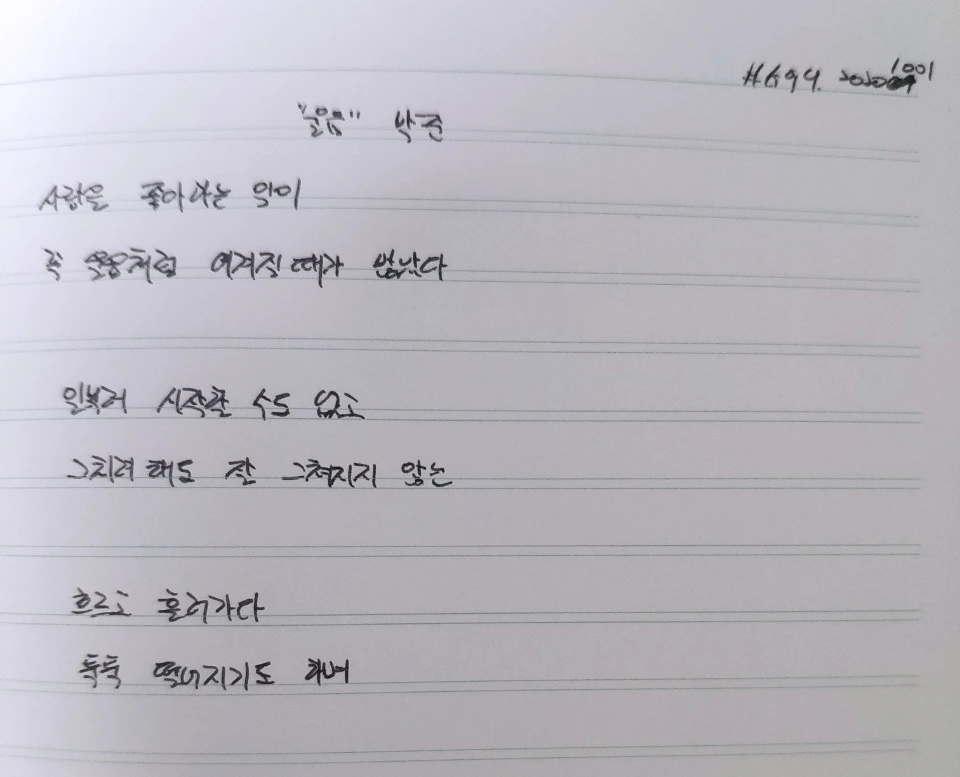 #699. 20201001
"울음" 박준
사람을 좋아하는 일이
꼭 울음처럼 여겨질 때가 많았다
일부러 시작할 수도 없고
그치려 해도 잘 그쳐지지 않는
흐르고 흘러가다
툭툭 떨어지기도 하며